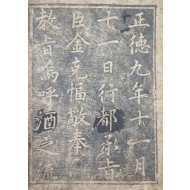 正德九年十一月
十一日行都承旨
臣金克愊敬奉
教旨嗚呼酒之